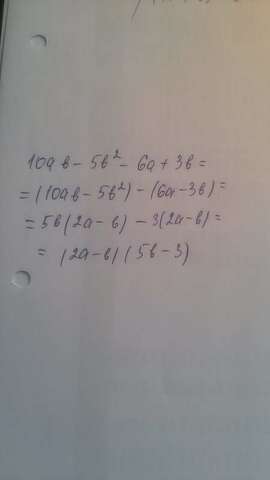 10ab - 5b² - 6a + 3b =
= (10ab - 5b²) - (6a - 3b) =
= 5b(2a - b) - 3(2a - b) =
= (2a - b)(5b - 3)